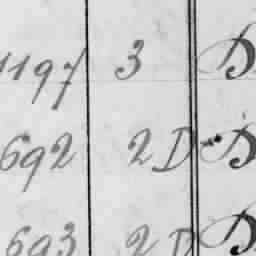 1197 3 D
692 2D D
693 2D D